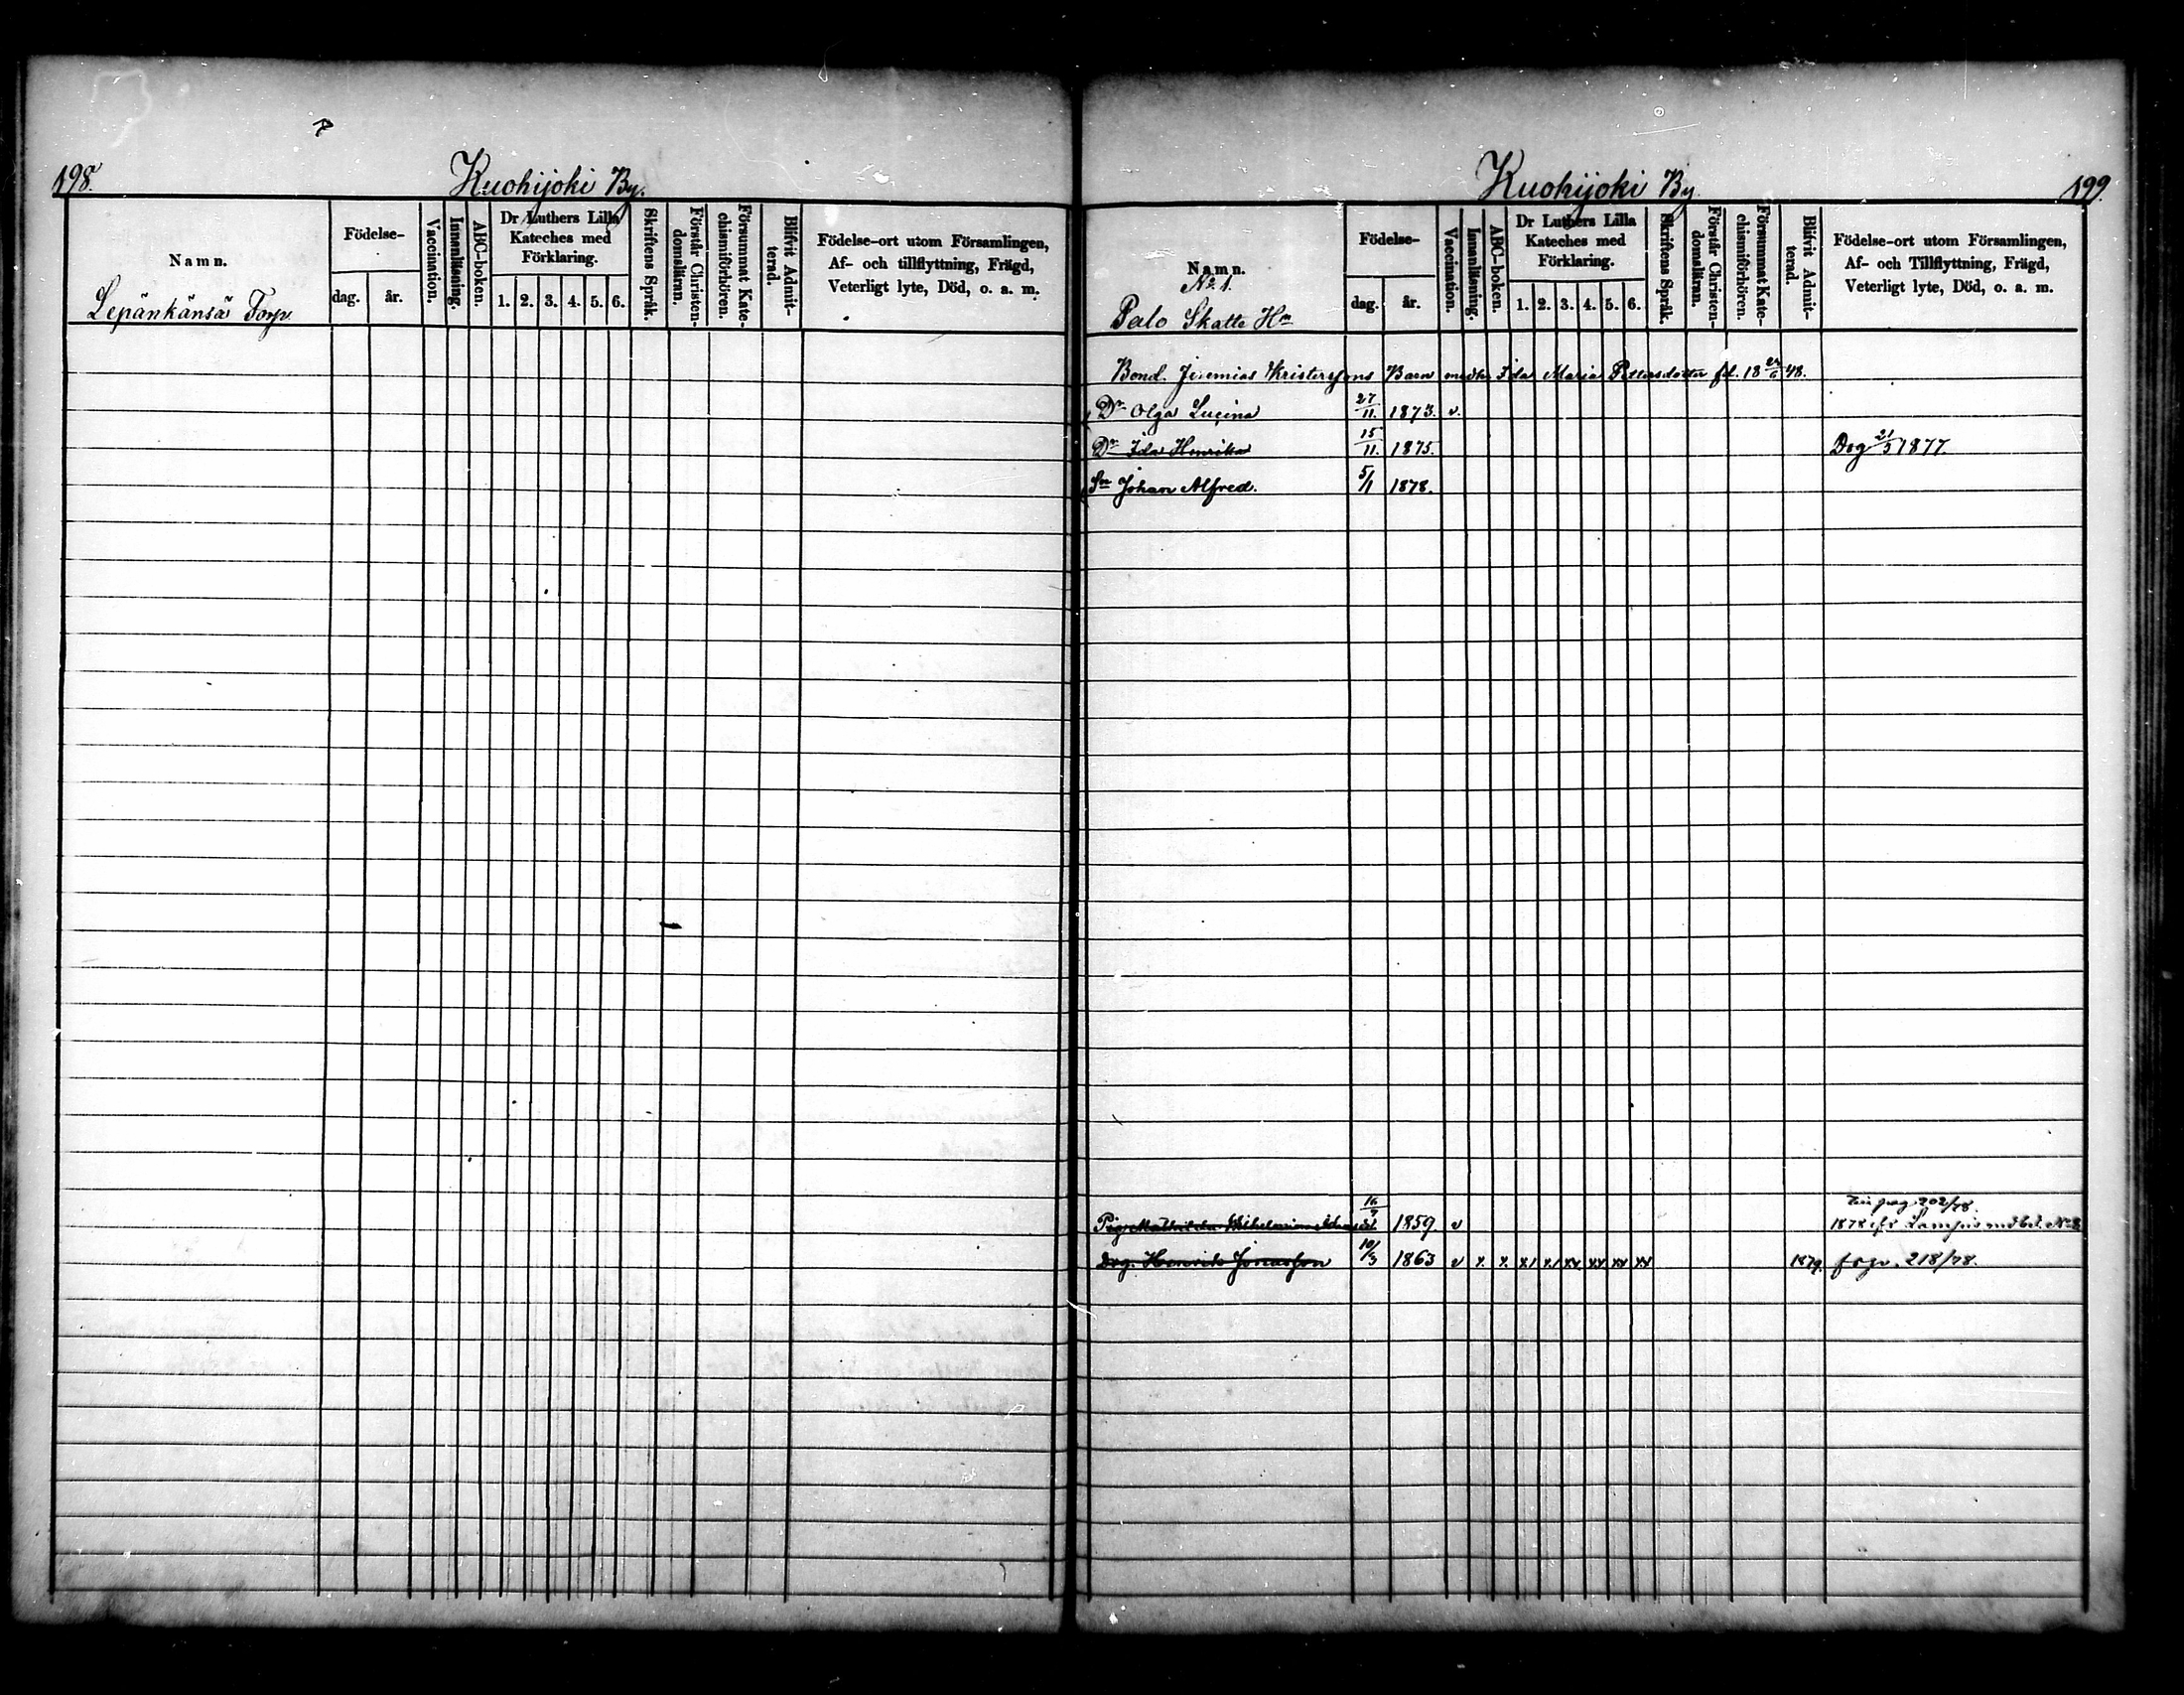 198.
Kuohijoki By.
Namn.
Födelse-
dag.
år.
Vaccination.
Innanläsning.
ABC-boken.
Dr Luthers Lilla
Kateches med
Förklaring.
1. 2. 3. 4. 5. 6.
Skriftens Språk.
Förstår Christen-
domsläran.
Försummat Kate-
chismiförhören.
Blifvit Admit-
terad.
Födelse-ort utom Församlingen,
Af- och tillflyttning, Frägd,
Veterligt lyte, Död, o. a. m.
Lepänkänsä Torp.
Kuohijoki By
199.
Namn.
Födelse-
dag.
år.
Vaccination.
Innanläsning.
ABC-boken.
Dr Luthers Lilla
Kateches med
Förklaring.
1. 2. 3. 4. 5. 6.
Skriftens Språk.
Förstår Christen-
domsläran.
Försummat Kate-
chismiförhören.
Blifvit Admit-
terad.
Födelse-ort utom Församlingen,
Af- och Tillflyttning, Frägd,
Veterligt lyte, Död, o. a. m.
No 1.
Palo Skatte Hn
Bond. Jeremias Kristerssons Barn med Ida Maria Pettersdotter fd. 18 /6 48.
Dr Olga Lucina 27/11. 1873. v.
Dr Ida Henrika 15/11. 1875. Dog 21/5 1877.
Sn Johan Alfred. 5/1 1878.
Pig. Mathilda Wilhelmina 16/7 1859. v 202/78.
1878 No 8
Drg. Henrik Jonasson 10/3 1863 v x x x1 x1 xx xx xx xx 1879. 218/78.